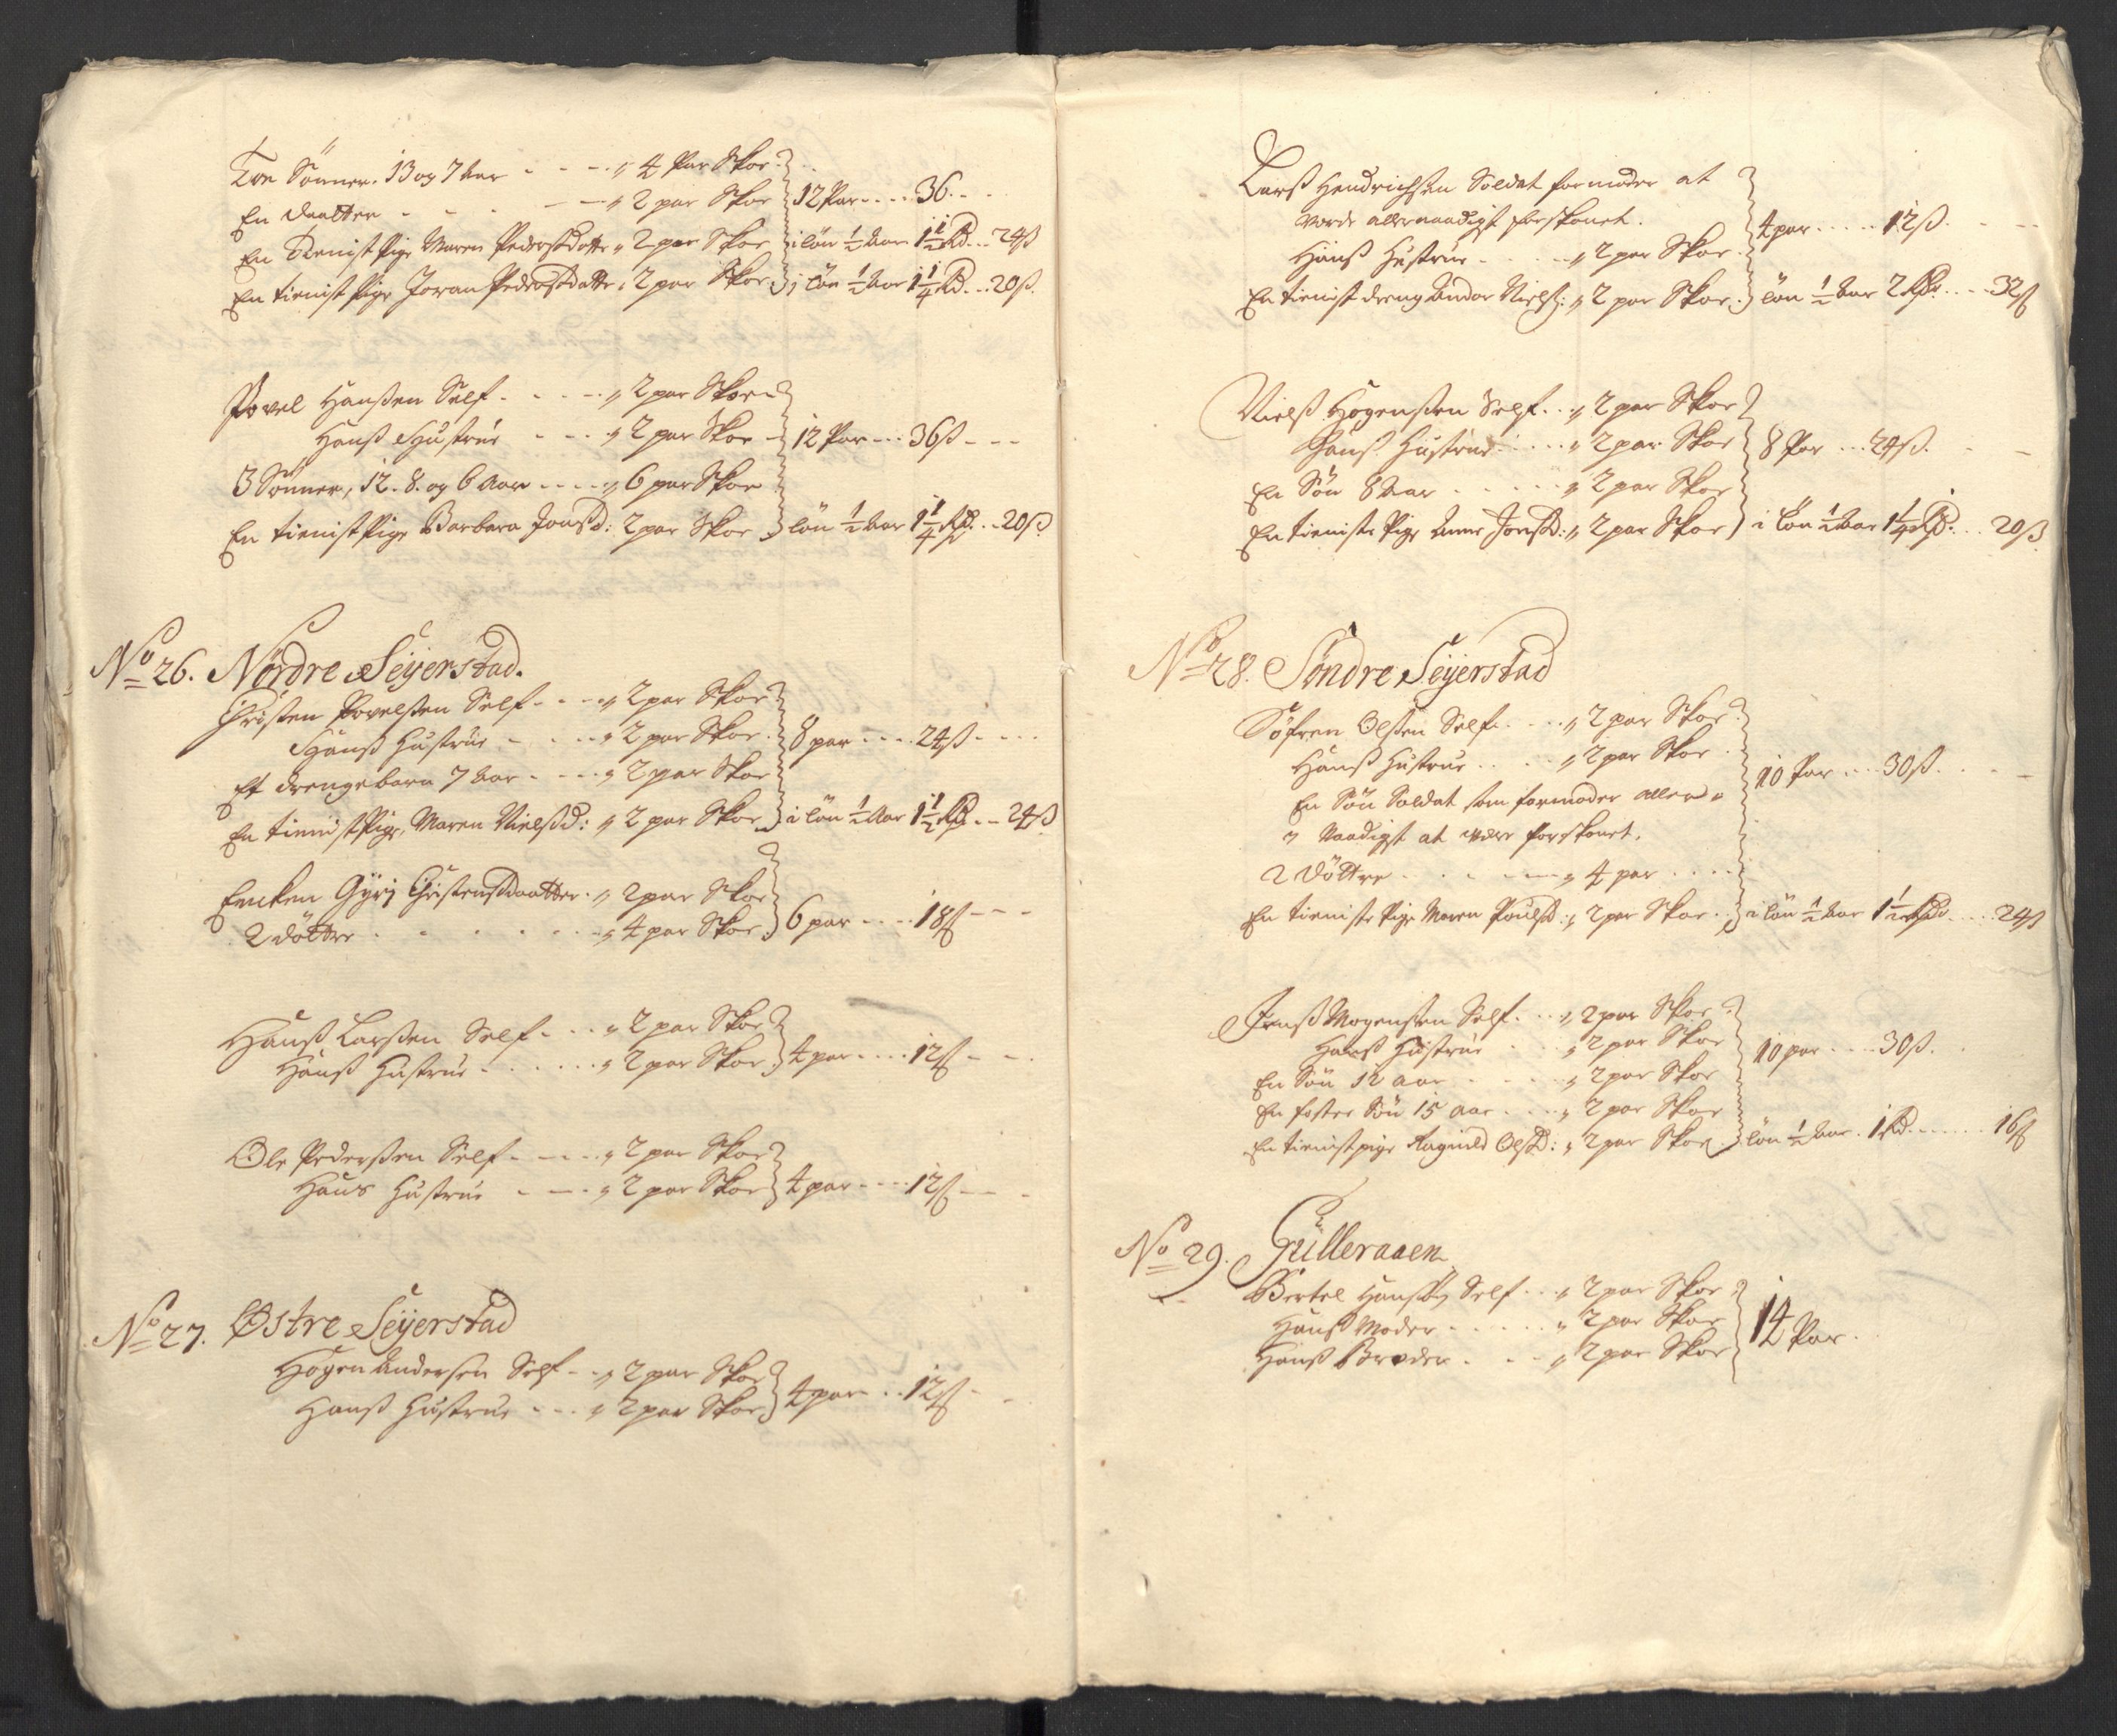 Tvn Sönner. 13 og 7 Aar - - - „ 4 Par Skoe
En daatter - - - - „ 2 par Skoe 12 Par - - - 36 - -
En Tienist Pige Maren Pedersdotter „ 2 par Skoe i lön ½ Aar 1½ Rd - - 24 ß
En tienist Pige Joran Pedersdotter „ 2 par Skoe i lön ½ Aar 1¼ Rd - - 20 ß.
Povel Hanßen Self - - - „ 2 par Skoe
Hanß Hustrue - - - „ 2 par Skoe 12 Par - - - 36 ß - - -
3 Sönner, 12. 8. og 6 Aar - - - „ 6 par Skoe
En tienist Pige Barbara Jonsd: 2 par Skoe lön ½ Aar 1¼ Rd. - - 20 ß
No 26. Nordre Seÿerstad.
Christen Povelsen Self - - - „ 2 par Skoe
Hanß Hustrue - - - „ 2 par Skoe 8 par - - - 24 ß - - - -
Et drengebarn 7 Aar - - - „ 2 par Skoe
En tienist Pige, Maren Nielsd: „ 2 par Skoe i lön ½ Aar 1½ Rd - - 24 ß
Encken Gÿri Christensdaatter „ 2 par Skoe
2 döttre - - - - - - „ 4 par Skoe 6 par - - - 18 ß - - -
Hanß Larsen Self - - - „ 2 par Skoe
Hanß Hustrue - - - - - „ 2 par Skoe 4 par - - - 12 ß - - -
Ole Pedersen Self - - - - „ 2 par Skoe
Hans Hustrue - - - „ 2 par Skoe 4 par - - - 12 ß - - -
No 27. Østre Seÿerstad
Hogen Andersen Self - - „ 2 par Skoe
Hanß Hustrue - - - „ 2 par Skoe 4 par - - 12 ß - -
Larß Hendrichsen Soldat formoder at
vorde allernaadigst forskonet. 4 par - - - - 12 ß. - - -
Hanß Hustrue - - - - „ 2 par Skoe
En tienist dreng Andor Nielß: „ 2 par Skoe lön ½ Aar 2 Rdr. - - - 32 ß
Nielß Hogensen Self - - „ 2 par Skoe
Hanß Hustrue - - - - „ 2 par Skoe 8 Par - - - 24 ß. - -
En Sön 8 Aar - - - - „ 2 par Skoe
En tieniste Pige Anne Jonsd: „ 2 par Skoe i lön ½ Aar 1¼ Rd. - - 20 ß
No 28. Söndre Seÿerstad
Söfren Olsen Self - - - „ 2 par Skoe
Hanß Hustrue - - - „ 2 par Skoe 10 Par - - - 30 ß. - - -
En Sön Soldat som formoder aller„
„ Naadigst at være forskonet.
2 Döttre - - - - - - „ 4 par - - - -
En tieniste Pige Maren Poulsd: „ 2 par Skoe i lön ½ Aar 1½ Rd - - - 24 ß
Jenß Mogensen Self - - „ 2 par Skoe
Hanß Hustrue - - - „ 2 par Skoe 10 par - - - 30 ß. -
En Sön 12 aar - - - - „ 2 par Skoe
En foster Sön 15 aar - - - „ 2 par Skoe
En tienist pige Ragnild Olsd: „ 2 par Skoe lön ½ Aar 1 Rd. - - - - 16 ß
No 29. Gülleraaen
Bertel Hansen Self - - „ 2 par Skoe
Hanß Moder - - - - - „ 2 par Skoe 14 Par.
Hanß Broder - - - „ 2 par Skoe